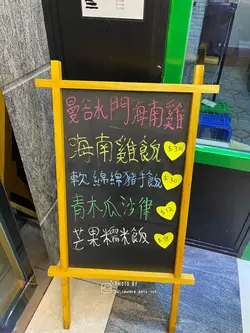 曼谷水門海南雞
海南雞飯 $30
軟綿綿豬手飯 $30
青木瓜沙律
芒果糯米飯
PHOTO BY